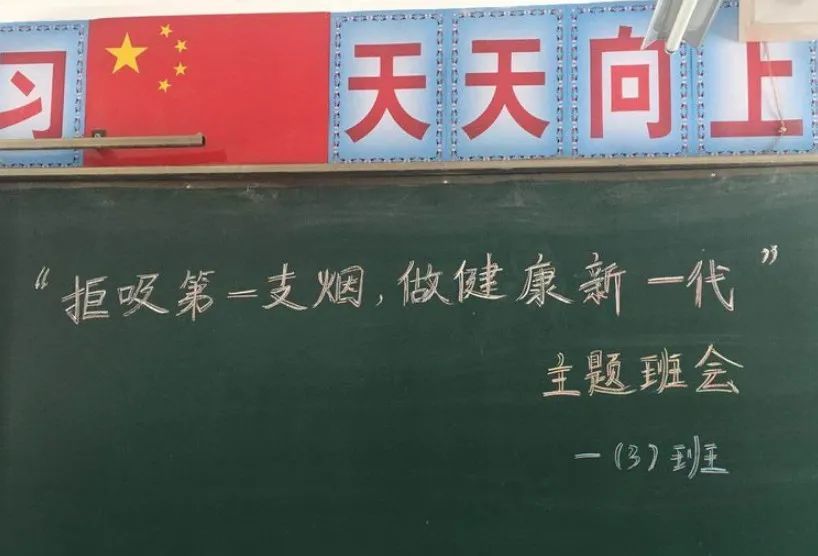 习 天天向上
“拒吸第一支烟,做健康新一代”
主题班会
一(3)班